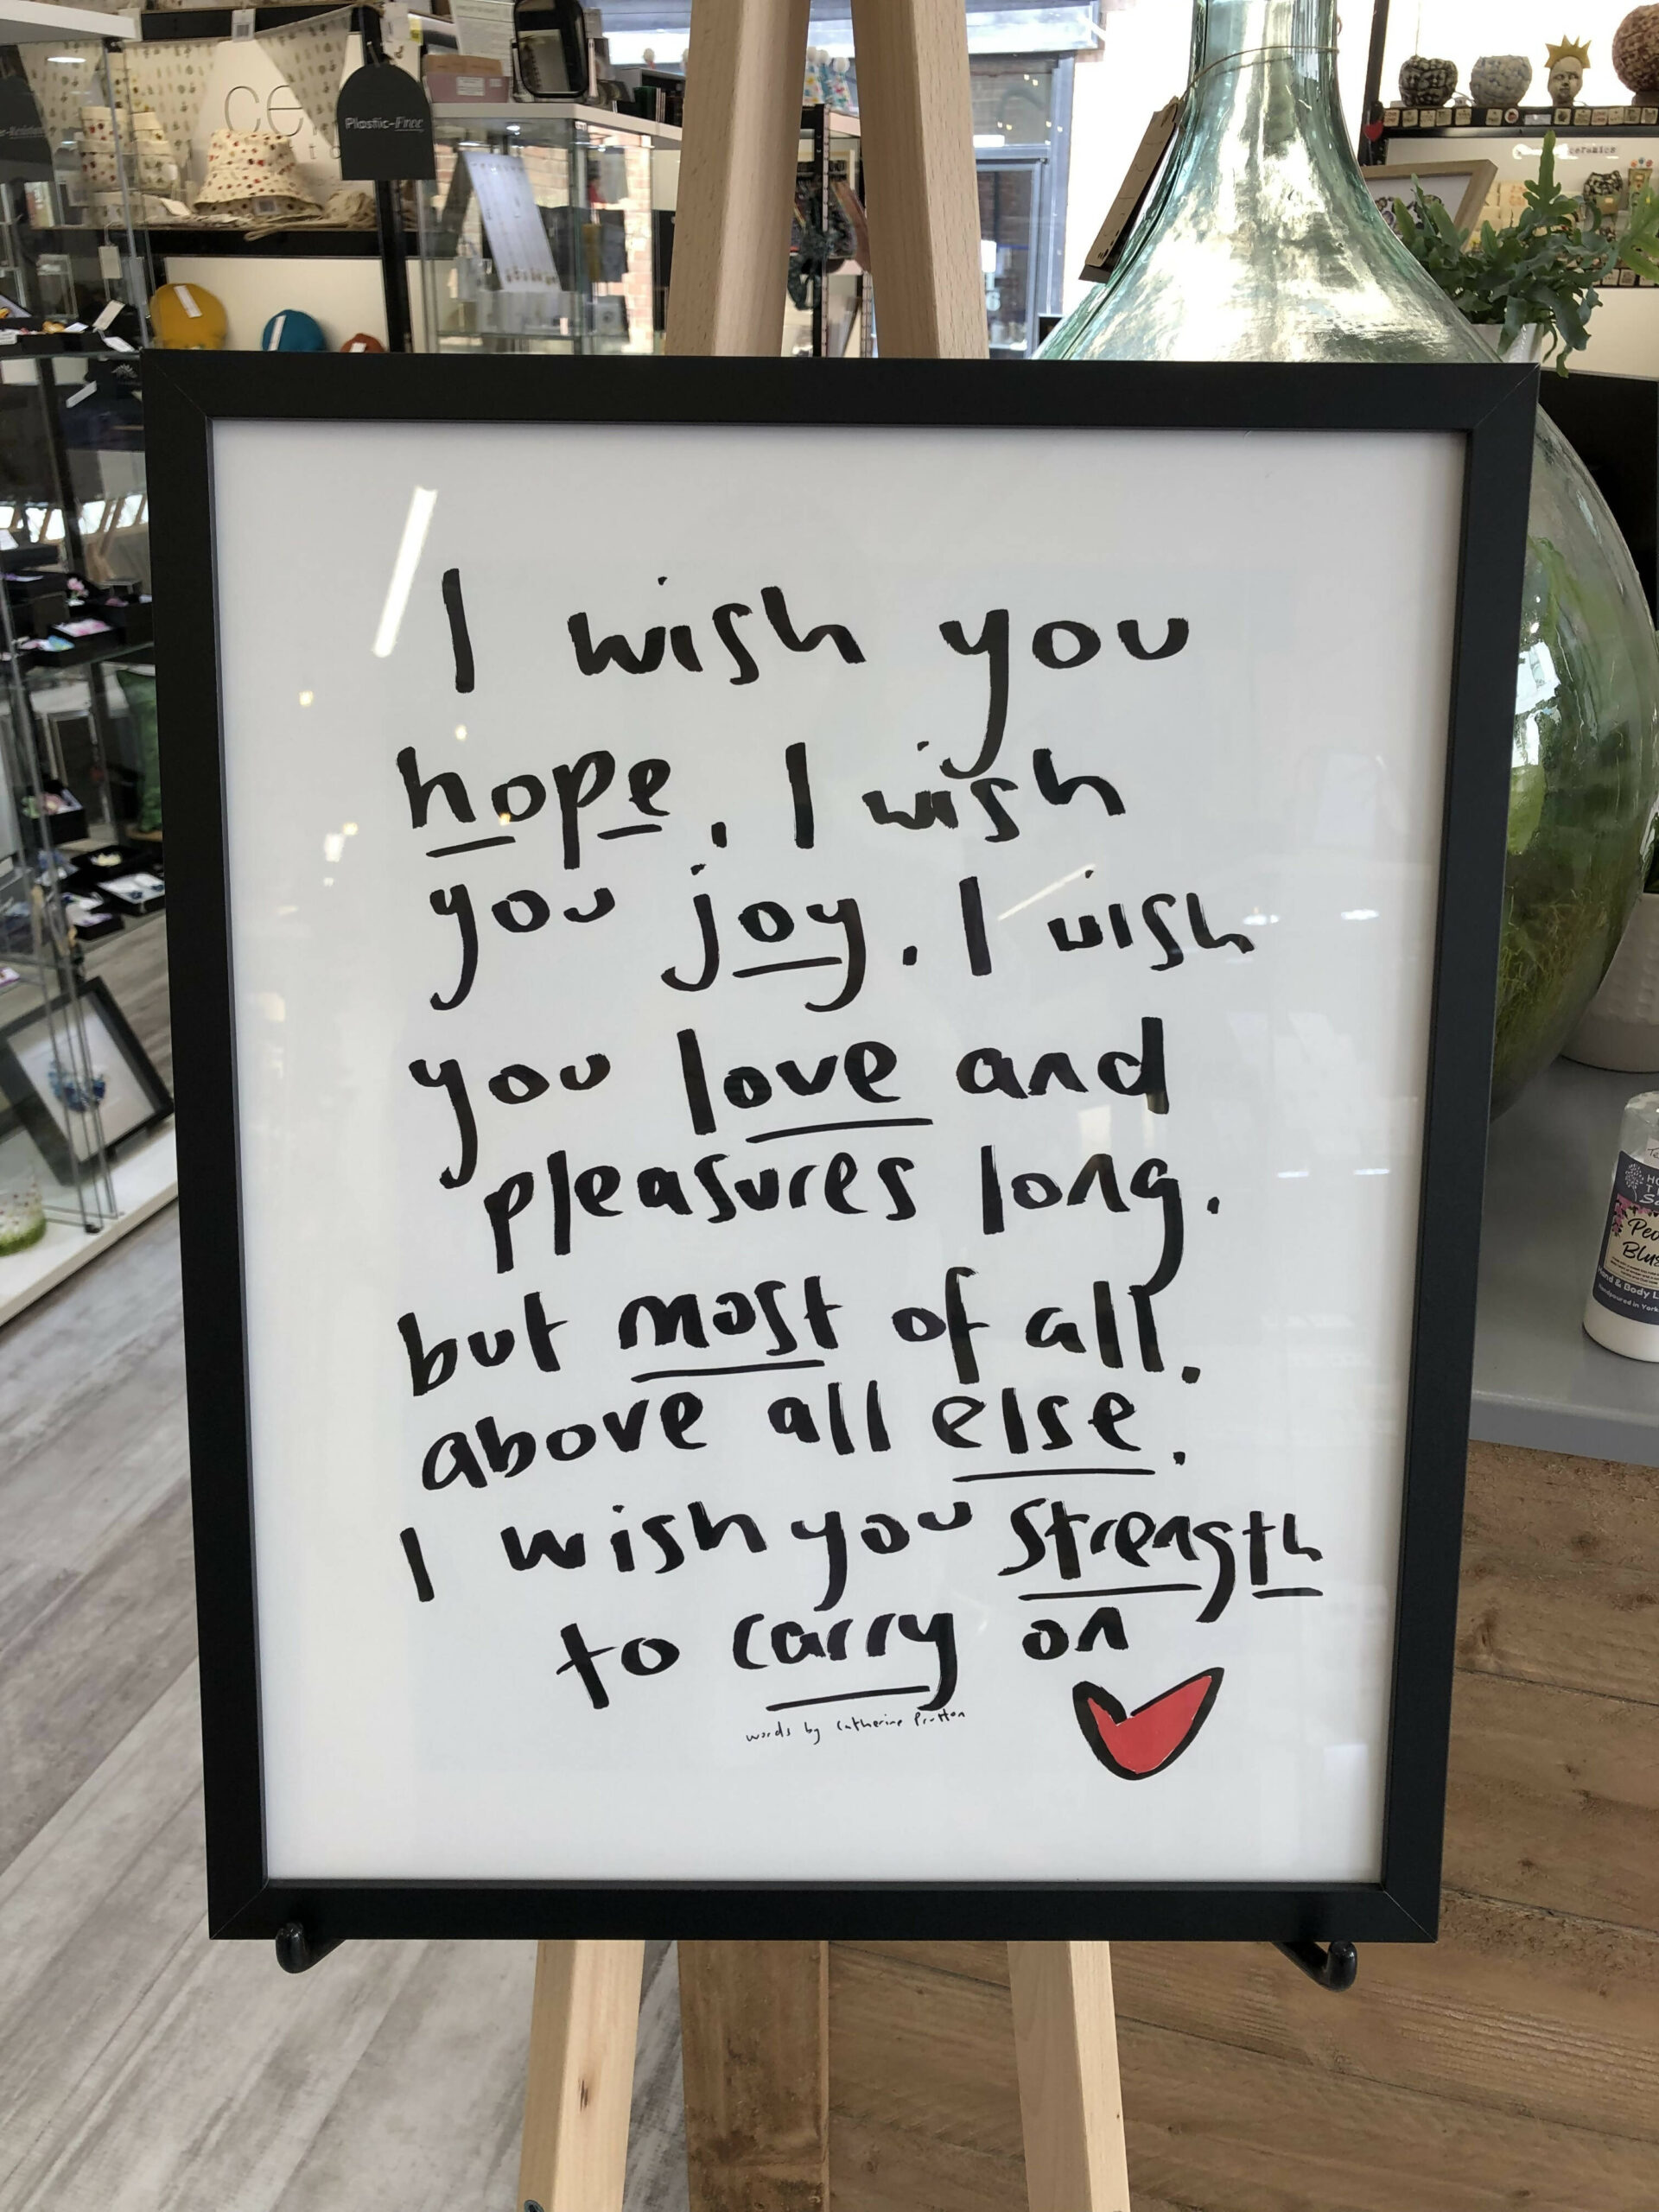 Plastic-Free
ceramics
I wish you
hope. I wish
you joy. I wish
you love and
pleasures long.
but most of all.
above all else.
I wish you strength
to carry on
words by Catherine Prutton
Hand & Body